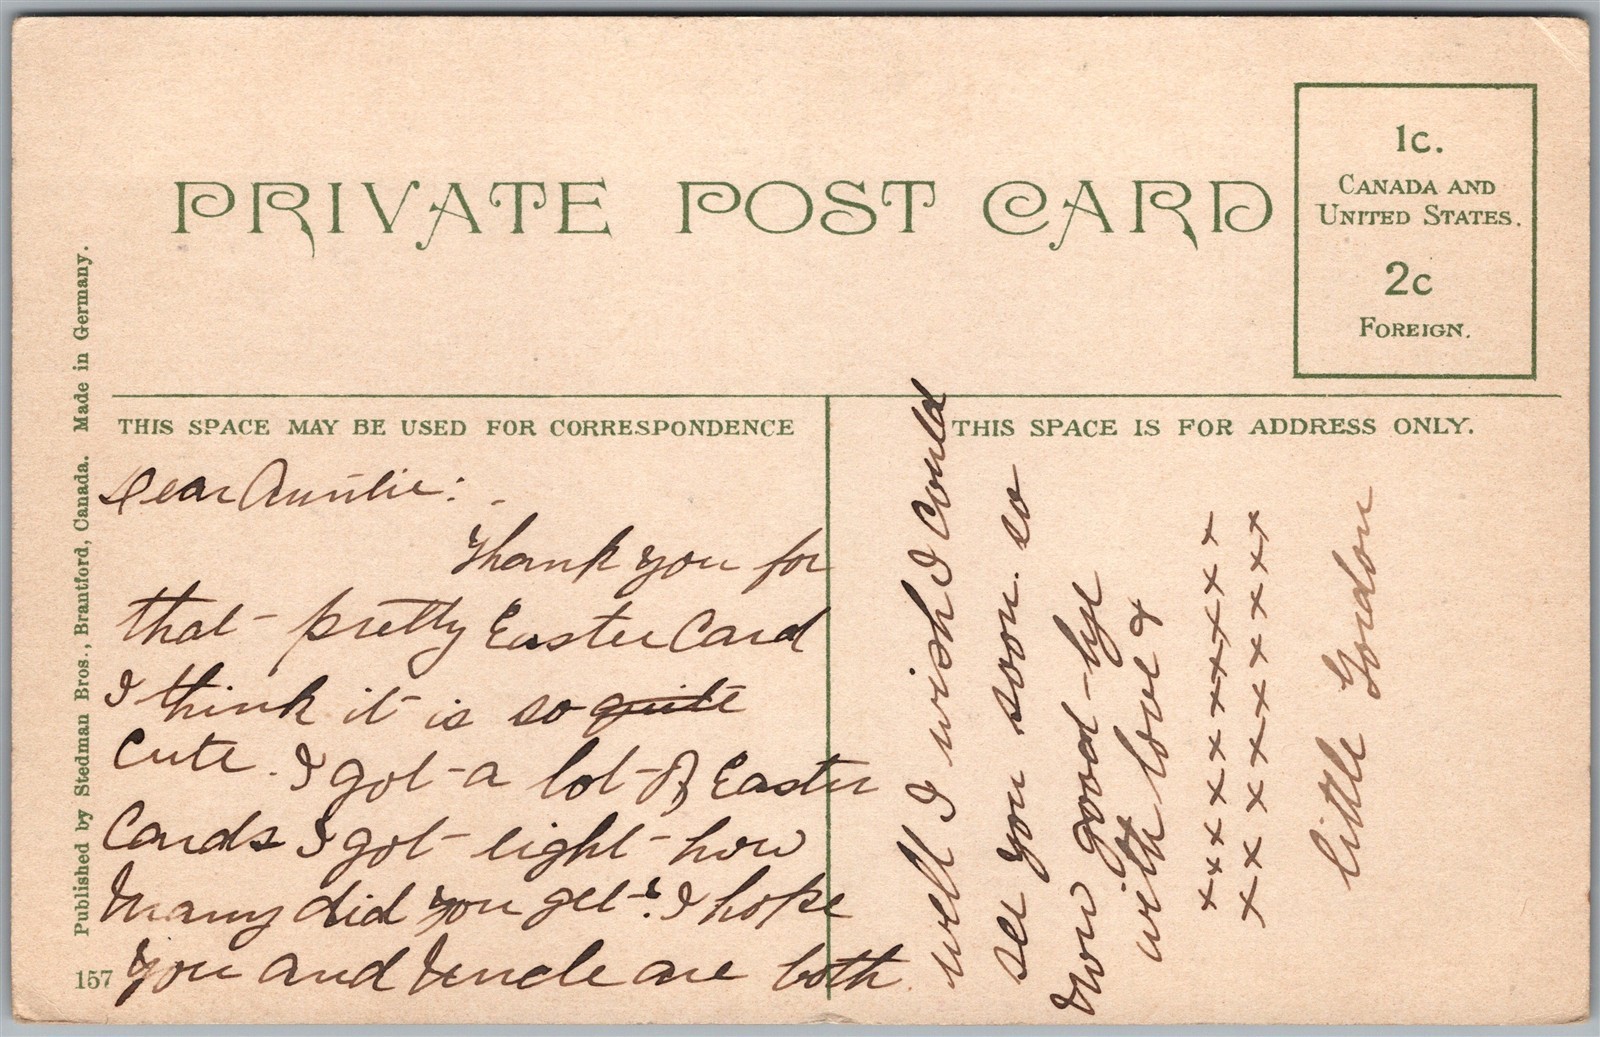 PRIVATE POST CARD
1c.
CANADA AND
UNITED STATES.
2c
FOREIGN.
Published by Stedman Bros., Brantford, Canada. Made in Germany.
157
THIS SPACE MAY BE USED FOR CORRESPONDENCE
THIS SPACE IS FOR ADDRESS ONLY.
Dear Auntie:
Thank you for
that pretty Easter Card
I think it is so quite
cute. I got a lot of Easter
Cards I got eight how
many did you get? I hope
you and Uncle are both
well I wish I could
see you soon. so
now good-bye
with love &
x x x x x x x x x x x
x x x x x x x x x x x
little Gordon